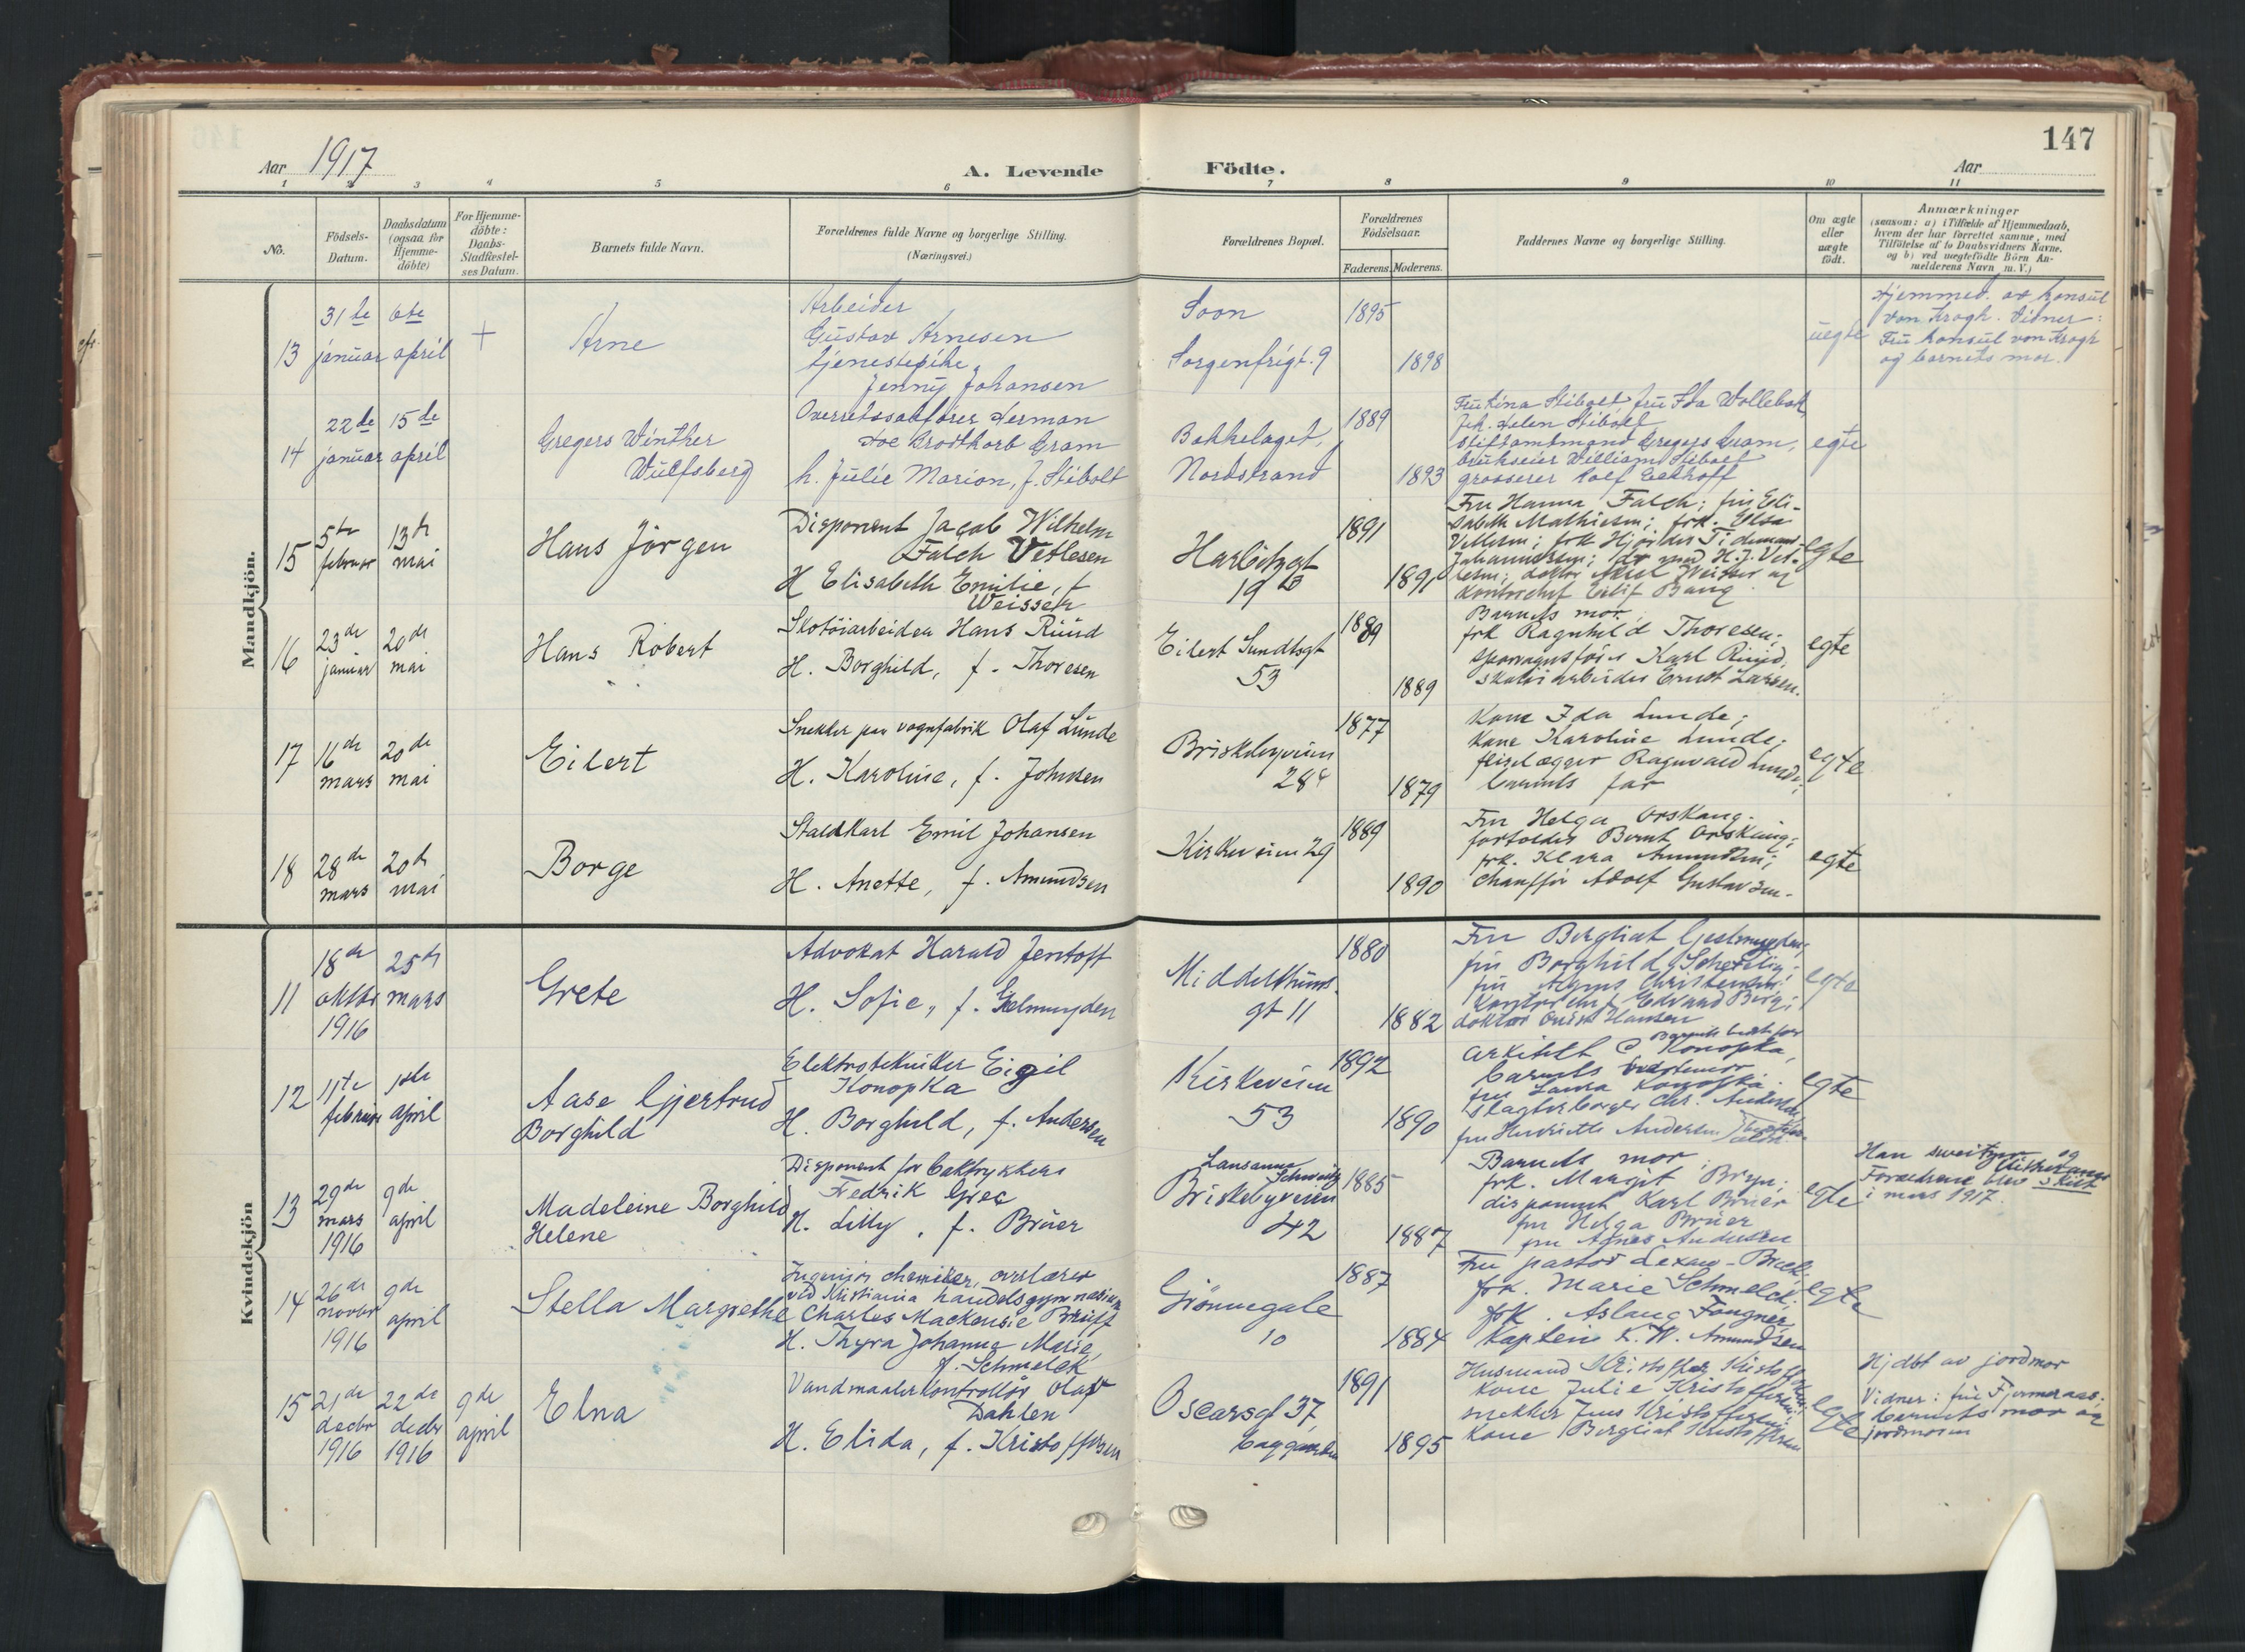 147
Aar 1917
A. Levende Födte.
Aar
1 2 3 4 5 6 7 8 9 10 11
No.
Födsels-
Datum.
Daabsdatum
(ogsaa for
Hjemme-
döbte)
For Hjemme-
döbte:
Daabs-
Stadfæstel-
ses Datum.
Barnets fulde Navn.
Forældrenes fulde Navne og borgerlige Stilling.
(Næringsvei.)
Forældrenes Bopæl.
Forældrenes
Födselsaar.
Faderens. Moderens.
Faddernes Navne og borgerlige Stilling.
Om ægte
eller
uægte
födt.
Anmærkninger
(saasom: a) i Tilfælde af Hjemmedaab,
hvem der har forrettet samme, med
Tilföielse af to Daabsvidners Navne,
og b) ved uægtefödte Börn An-
melderens Navn m. V.)
Mandkjön.
13
31te
januar
6te
april
+
Arne
Arbeider
Gustav Arnesen
tjenestepike
Jenny Johansen
Soon
Sorgenfrigt. 9
1895
1898
uegte
Hjemmed. av konsul
von Krogh. Vidner:
Fru konsul von Krogh
og barnets mor.
14
22de
januar
15de
april
Gregers Winther
Wulfsberg
Overretssakfører Herman
Joe Brodtkorb Gram
h. Julie Marion, f. Stibolt
Bækkelaget,
Nordstrand
1889
1893
Fru Lina Stibolt, fru Ida Wollebæk
Frk. Helen Stibolt
stiftamtmand Gregers Gram,
brukseier William Stibolt
grosserer Rolf Eckhoff
egte
15
5te
februar
13de
mai
Hans Jörgen
Disponent Jacob Wilhelm
Falch Vetlesen
H Elisabeth Emilie, f
Weisser
Harbitzgt
19 b
1891
1891
Fru Hanna Falch; fru Eli-
sabeth Mathiesen; frk. Elsa
Vetlesen; frk Hjördis Tidemand
Johannessen; dr med H.J. Vet-
lesen; doktor Axel Weisser og
kontorchef Eilif Bang
egte
16
23de
januar
20de
mai
Hans Robert
Skotöiarbeider Hans Ruud
H. Borghild, f. Thoresen
Eilert Sundtsgt
53
1889
1889
Barnets mor.
frk Ragnhild Thoresen;
sporvognsförer Karl Ruud,
skotöiarbeider Ernst Larsen.
egte
17
16de
mars
20de
mai
Eilert
Snekker paa vognfabrik Olaf Lunde
H. Karoline, f. Johnsen
Briskebyveien
28 c
1877
1879
Kone Ida Lunde;
Kone Karoline Lunde;
fliselægger Ragnvald Lunde;
barnets far
egte
18
28de
mars
20de
mai
Borge
Staldkarl Emil Johansen
H. Anette, f. Amundsen
Kirkeveien 29
1889
1890
Fru Helga Orskaug.
forvalter Bernt Orskaug;
frk. Klara Amundsen;
Chauffør Adolf Gustavsen.
egte
Kvindekjön
11
18de
oktbr
1916
25de
mars
Grete
Advokat Harald Jentoft
H. Sofie, f. Gjelmuyden
Middelthuns-
gt 11
1880
1882
Fru Bergliot Gjelmuyden;
fru Borghild Schetelig;
fru Agnes Christensen;
Kontorchef Edvard Berg;
doktor Hansen
egte
12
11te
februar
1ste
april
Aase Gjertrud
Borghild
Elektrotekniker Eigil
Konopka
H. Borghild, f. Andersen
Kirkeveien
53
1892
1890
Arkitekt C Konopka,
Barnets bestefar
barnets bestemor
fru Laura Konopka.
slagterborger Chr. Andersen
fru Henriette Andersen
egte
13
29de
mars
1916
9de
april
Madeleine Borghild
Helene
Disponent for boktrykkeri
Fredrik Grec
H. Lilly, f. Brüer
Lausanne
Schweitz
Briskebyveien
42
1885
1887
Barnets mor
frk. Margit Bryn;
disponent Karl Brüer
fru Helga Brüer
fru Agnes Andersen
egte
Han sweitzer og
Forældrene blev skilt
i mars 1917.
14
26de
novbr
1916
9de
april
Stella Margrethe
Ingeniör chemiker, overlærer
ved Kristiania handelsgymnasium
Charles Mackensie Bruff
H. Thyra Johanne Marie,
f. Schmelck
Grönnegate
10
1887
1884
Fru pastor Lexau-Beck.
frk. Marie Schmelck;
frk. Aslaug Fougner
Kaptein K. W. Amundsen
egte
15
21de
decbr
1916
22de
decbr
1916
9de
april
Elna
Vandmaalerkontrollör Olaf
Dahlen
H. Elida, f. Kristoffersen
Oscarsgt 37,
baggaarden
1891
1895
Husmand Kristoffer Kristoffersen
Kone Julie Kristoffersen;
snekker Jens Kristoffersen;
Kone Bergliot Kristoffersen
egte
Hjdbt av jordmor
Vidner: fru Fjermeraas;
barnets mor og
jordmoren